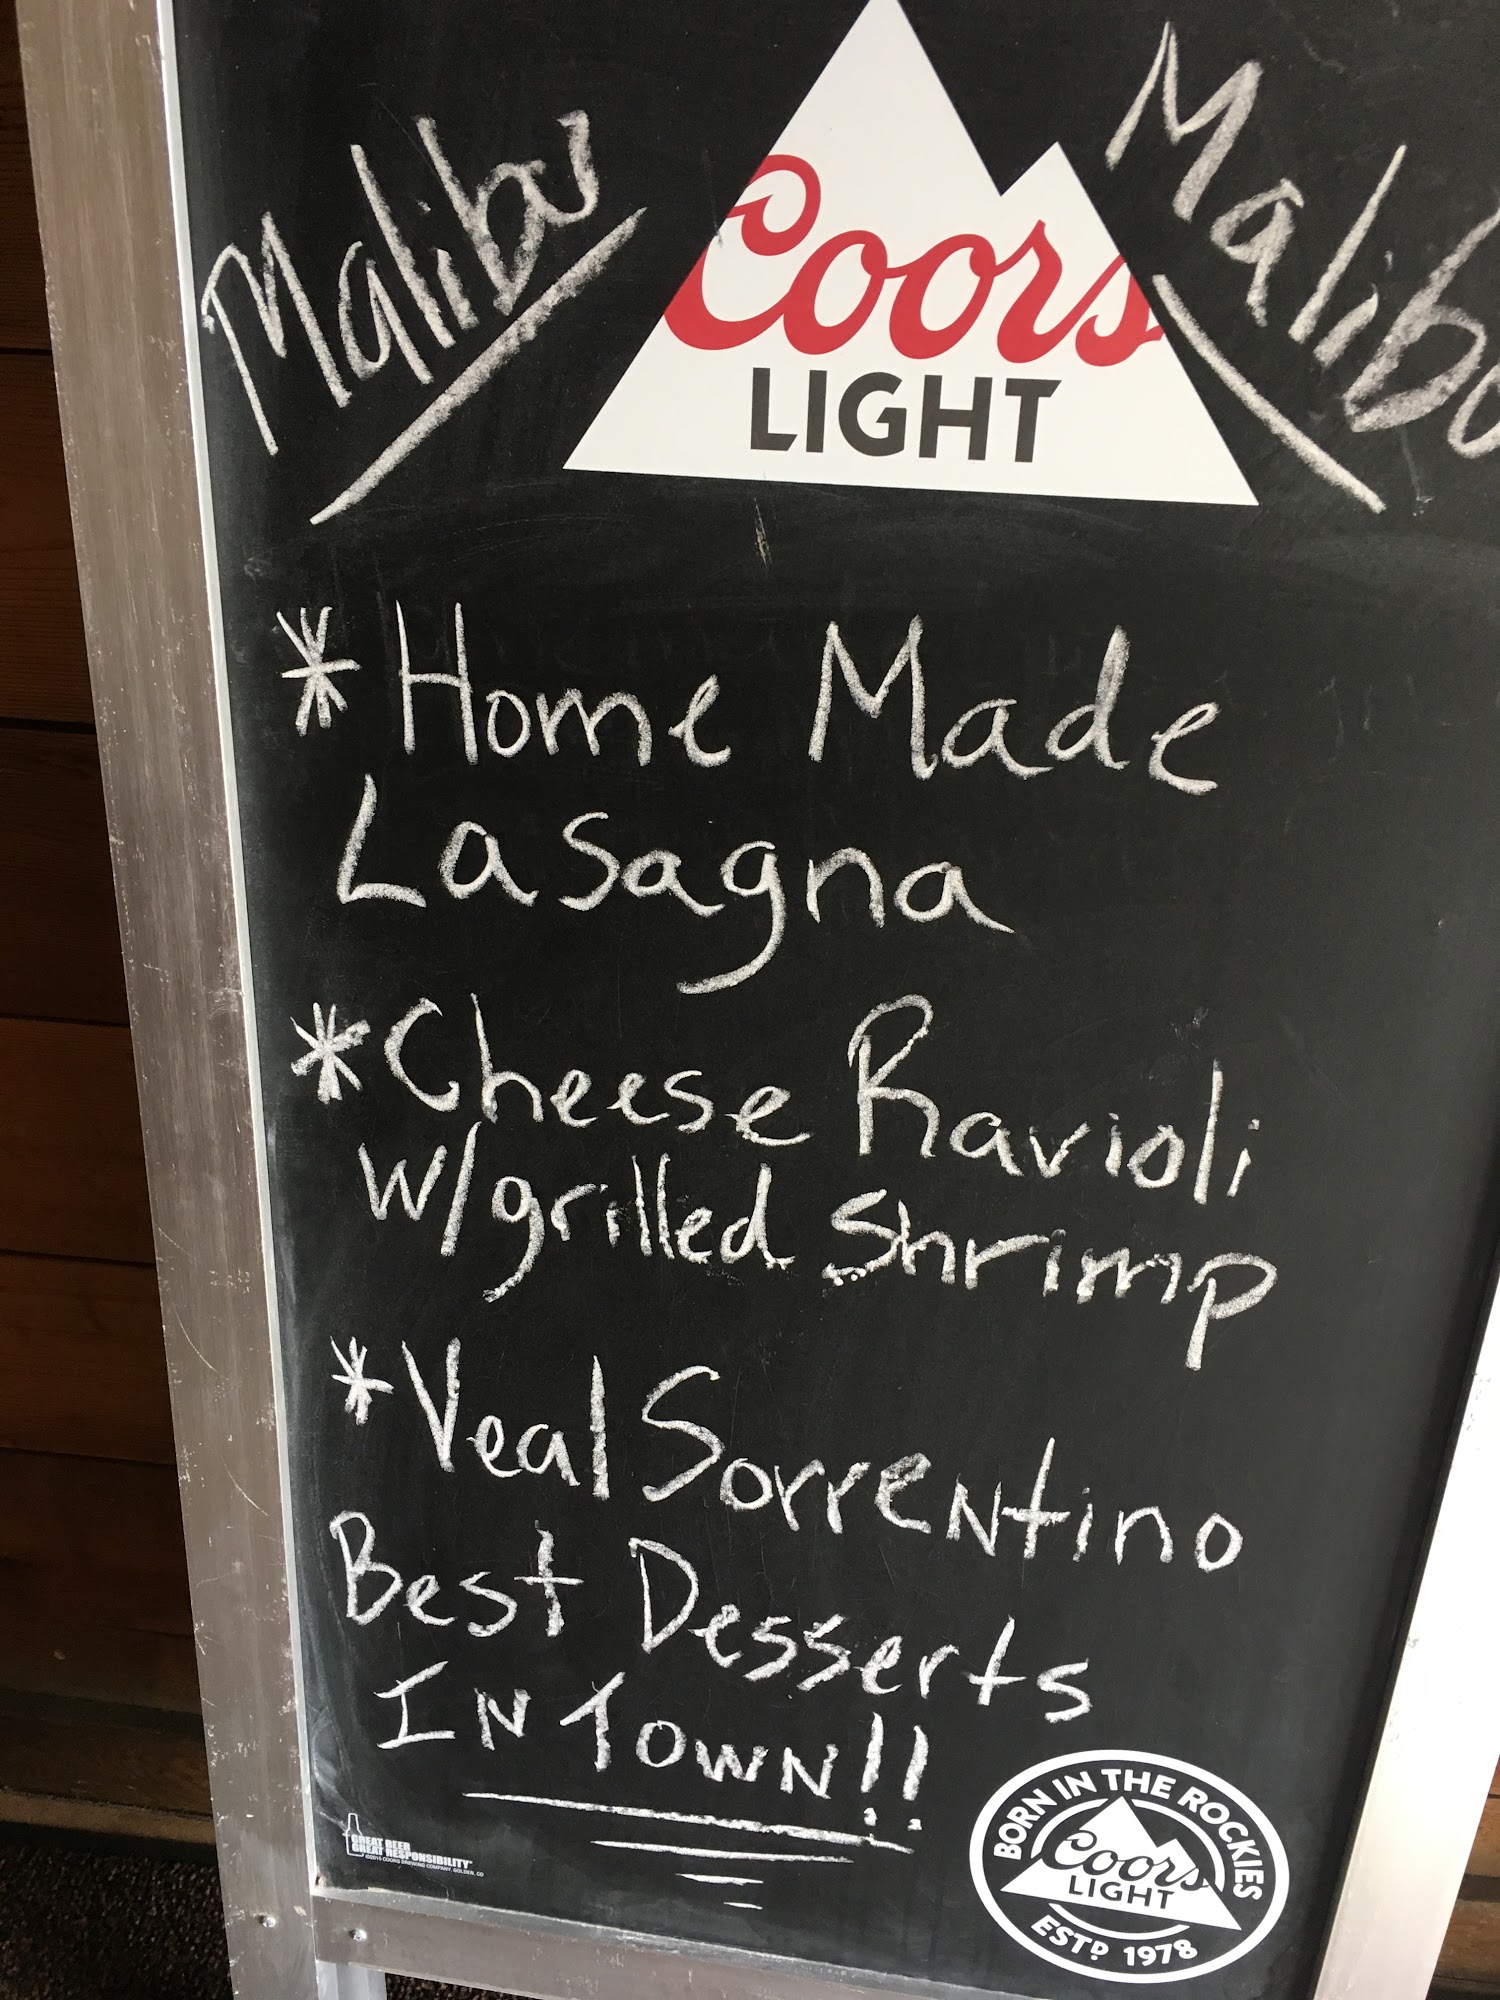 Malibu
Coors
LIGHT
Malibu
*Home Made
Lasagna
*Cheese Ravioli
w/grilled Shrimp
*Veal Sorrentino
Best Desserts
IN TOWN!!
GREAT BEER
GREAT RESPONSIBILITY
©2016 COORS BREWING COMPANY, GOLDEN, CO
BORN IN THE ROCKIES
Coors
LIGHT
ESTD 1978